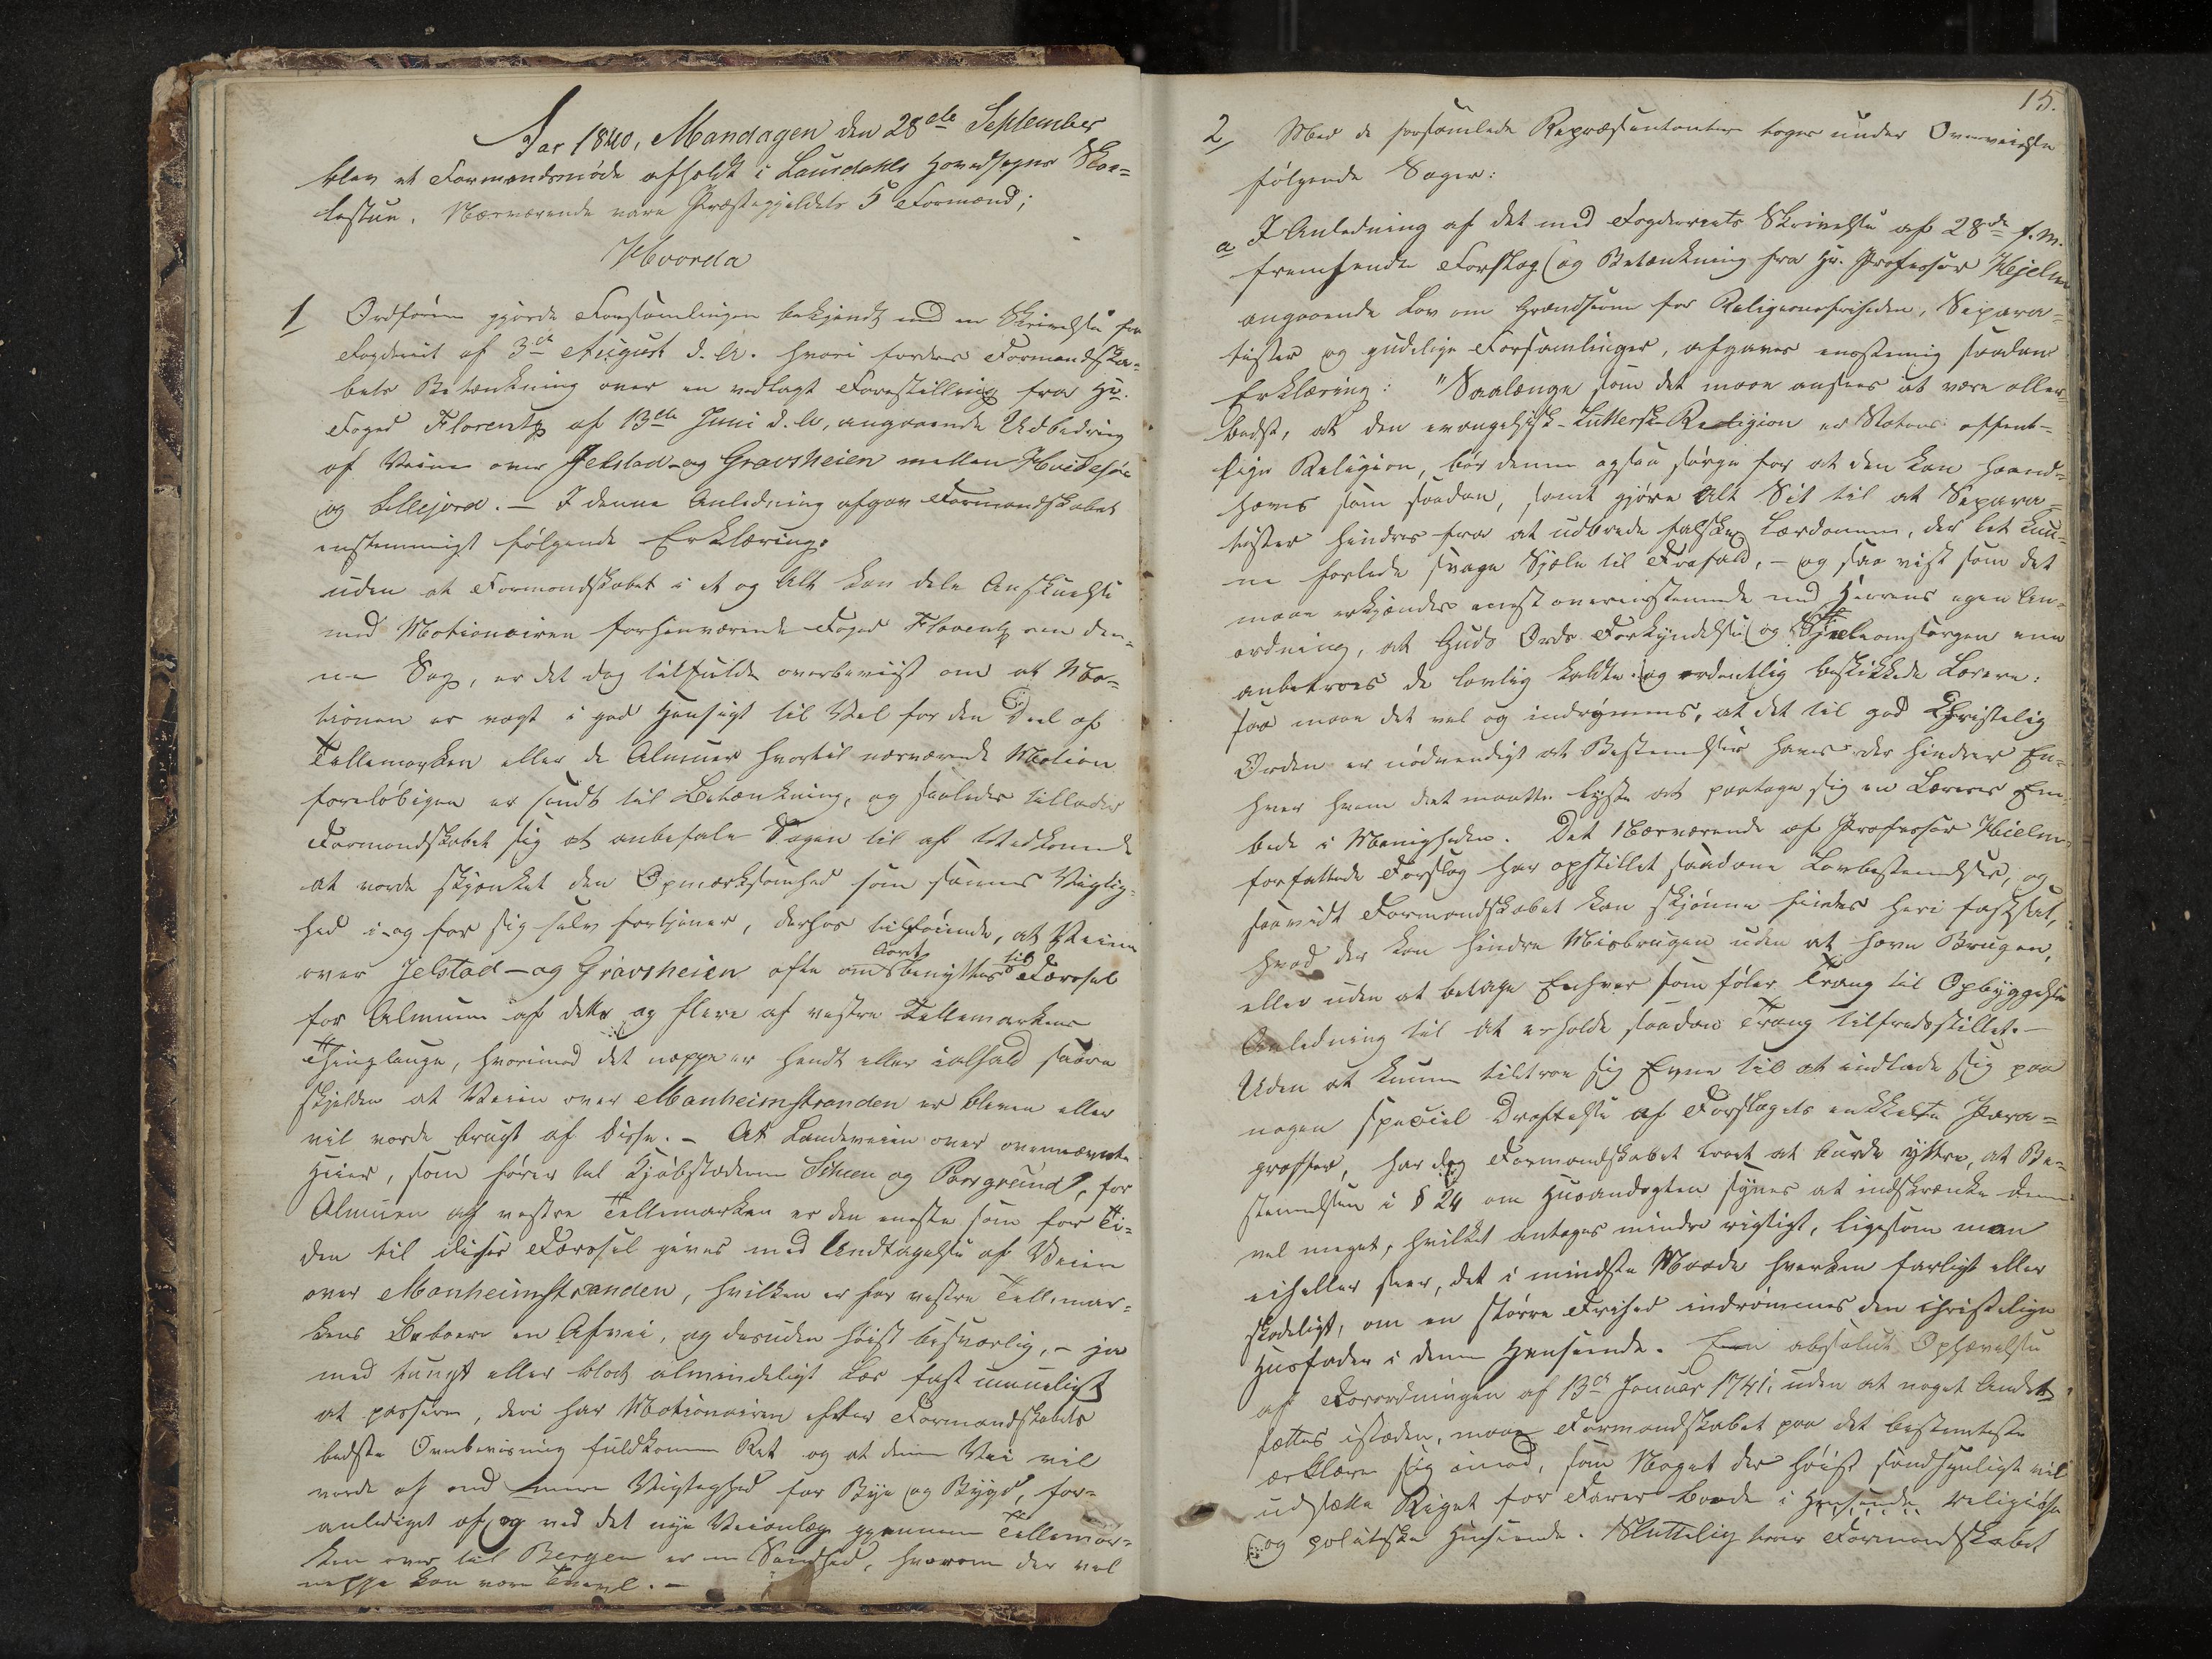 Aar 1840, Mandagen den 28de September
blev et Formandsmøde afholdt i Laurdahls Hovedsogns Skoe=
lestue. Nærværende vare Præstegjeldets 5 Formænd;
Hvorda
1 Ordføreren gjorde Forsamlingen bekjendt med en Skrivelse fra
Fogderiet af 3die August d. A. hvori fordres Formandska=
bets Betænkning over en vedlagt Forestilling fra Hr.
Foged Florentz af 13de Juni d. A, angaaende Udbedring
af Veien over Jelstad- og Gravsheien mellem Hvidesøe
og Sillejord. – I denne Anledning afgav Formandskabet
enstemmigt følgende Erklæring:
uden at Formandskabet i et og Alt kan dele Anskuelse
med Motionairen forhenværende Foged Florentz om den=
ne Sag, er det dog tilfulde overbeviist om at Mo=
tionen er vagt i god Hensigt til Vel for den Deel af
Tellemarken eller de Almuer hvortil nærværende Motion
foreløbigen er sendt til Betænkning, og saaledes tillader
Formandskabet sig at anbefale Sagen til af Vedkommende
at vorde skjænket den Opmærksomhed som sammes Vigtig=
hed i- og for sig selv fortjener, derhos tilføiende, at Veien
over Jelstad- og Gravsheien ofte om Aaret benyttes til Færdsel
for Almuen af dette og flere af vestre Tellemarkens
Thinglauge, hvorimod det neppe er hendt eller ialfald saare
skjelden at Veien over Manheimstranden er bleven eller
vil vorde brugt af disse. – At Landeveien over ovennævnte
Heier, som fører til Kjøbstæderne Schien og Porsgrund, for
Almuen af vestre Tellemarken er den eneste som for Ti=
den til deres Færdsel gives med Undtagelse af Veien
over Manheimstranden, hvilken er for vestre Tellemar=
kens Beboere en Afvei, og desuden høist besværlig, – ja
med tungt eller blot almindeligt Læs fast umueligt
at passere, deri har Motionairen efter Formandskabets
bedste Overbevisning fuldkommen Ret og at denne Vei vil
vorde af end mere Vigtighed for Bye og Bygd, for=
anlediget af og ved det nye Veianlæg gjennem Tellemar=
ken over til Bergen er en Sandhed, hvorom der vel
neppe kan være Tvivl. –
15.
2, Med de forsamlede Repræsentanter toges under Overveielse
følgende Sager:
a I Anledning af det med Fogderiets Skrivelse af 28de f. M.
fremsendte Forslag og Betænkning fra Hr. Professor Hjelm
angaaende Lov om Grændserne for Religionsfriheden, Separa=
tister og gudelige Forsamlinger, afgaves enstemmig saadan
Erklæring: "Saalænge som det maae ansees at være aller=
bedst, at den evangelisk-Luthersk-Religion er Statens offent=
lige Religion, bør denne ogsaa sørge for at den kan haand=
hæves som saadan, samt gjøre Alt Sit til at Separa=
tister hindres fra at udbrede falske Lærdomme, der let kun=
ne forlede svage Sjæle til Frafald, – og saa vist som det
maae erkjendes enest overeensstemmende med Herrens egen An=
ordning, at Guds Ords Forkyndelse og Sjæleomsorgen ene
anbetroes de lovlig kaldte og ordentlig beskikkede Lærere:
saa maae det vel og indrømmes, at det til god Christelig
Orden er nødvendigt at Bestemmelser haves der hindrer En=
hver hvem det maatte lyste at paatage sig en Lærers Em=
bede i Menigheden. Det Nærværende af Professor Hielm
forfattede Forslag har opstillet saadanne Lovbestemmelser, og
saavidt Formandskabet kan skjønne findes heri fastsat,
hvad der kan hindre Misbrugen uden at hæve Brugen,
eller uden at betage Enhver som føler Trang til Opbyggelse
Anledning til at erholde saadan Trang tilfredsstillet. –
Uden at kunne tiltroe sig Evne til at indlade sig paa
nogen speciel Drøftelse af Forslagets enkkelte Para=
graffer, har dog Formandskabet troet at burde yttre, at Be=
stemmelsen i § 24 om Huusandagten synes at indskrænke denne
vel meget, hvilket antages mindre rigtigt, ligesom man
eiheller seer, det i mindste Maade hverken farligt eller
skadeligt, om en større Frihed indrømmes den christelige
Huusfader i denne Henseende. Een absolut Ophævelse
af Forordningen af 13de Januar 1741, uden at noget Andet
sættes istæden, maae Formandskabet paa det bestemteste
erklære sig imod, som Noget der høist sandsynligt vil
udsætte Riget for Farer baade i Henseende religiøse
og politiske Henseende. Sluttelig troer Formandskabet